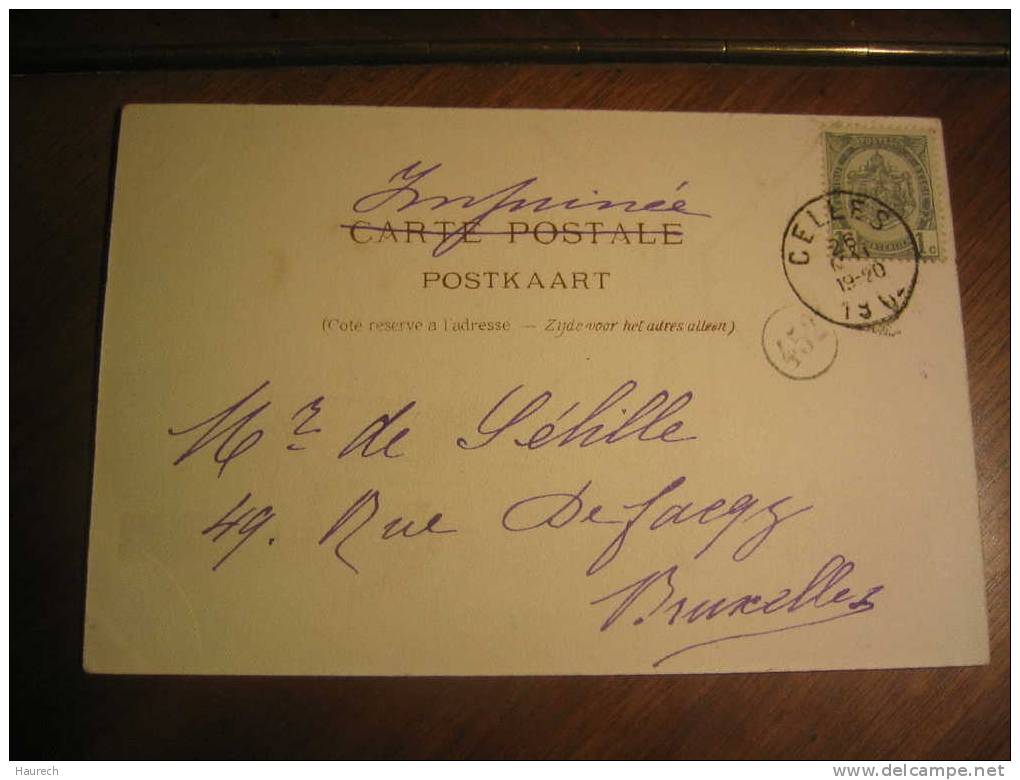 Imprimée
CARTE POSTALE
POSTKAART
(Côté réservé à l'adresse — Zijde voor het adres alleen)
CELLES
26
19-20
1 C
452
Mr de
49. Rue Defacqz
Bruxelles
Haurech
delcampe.net